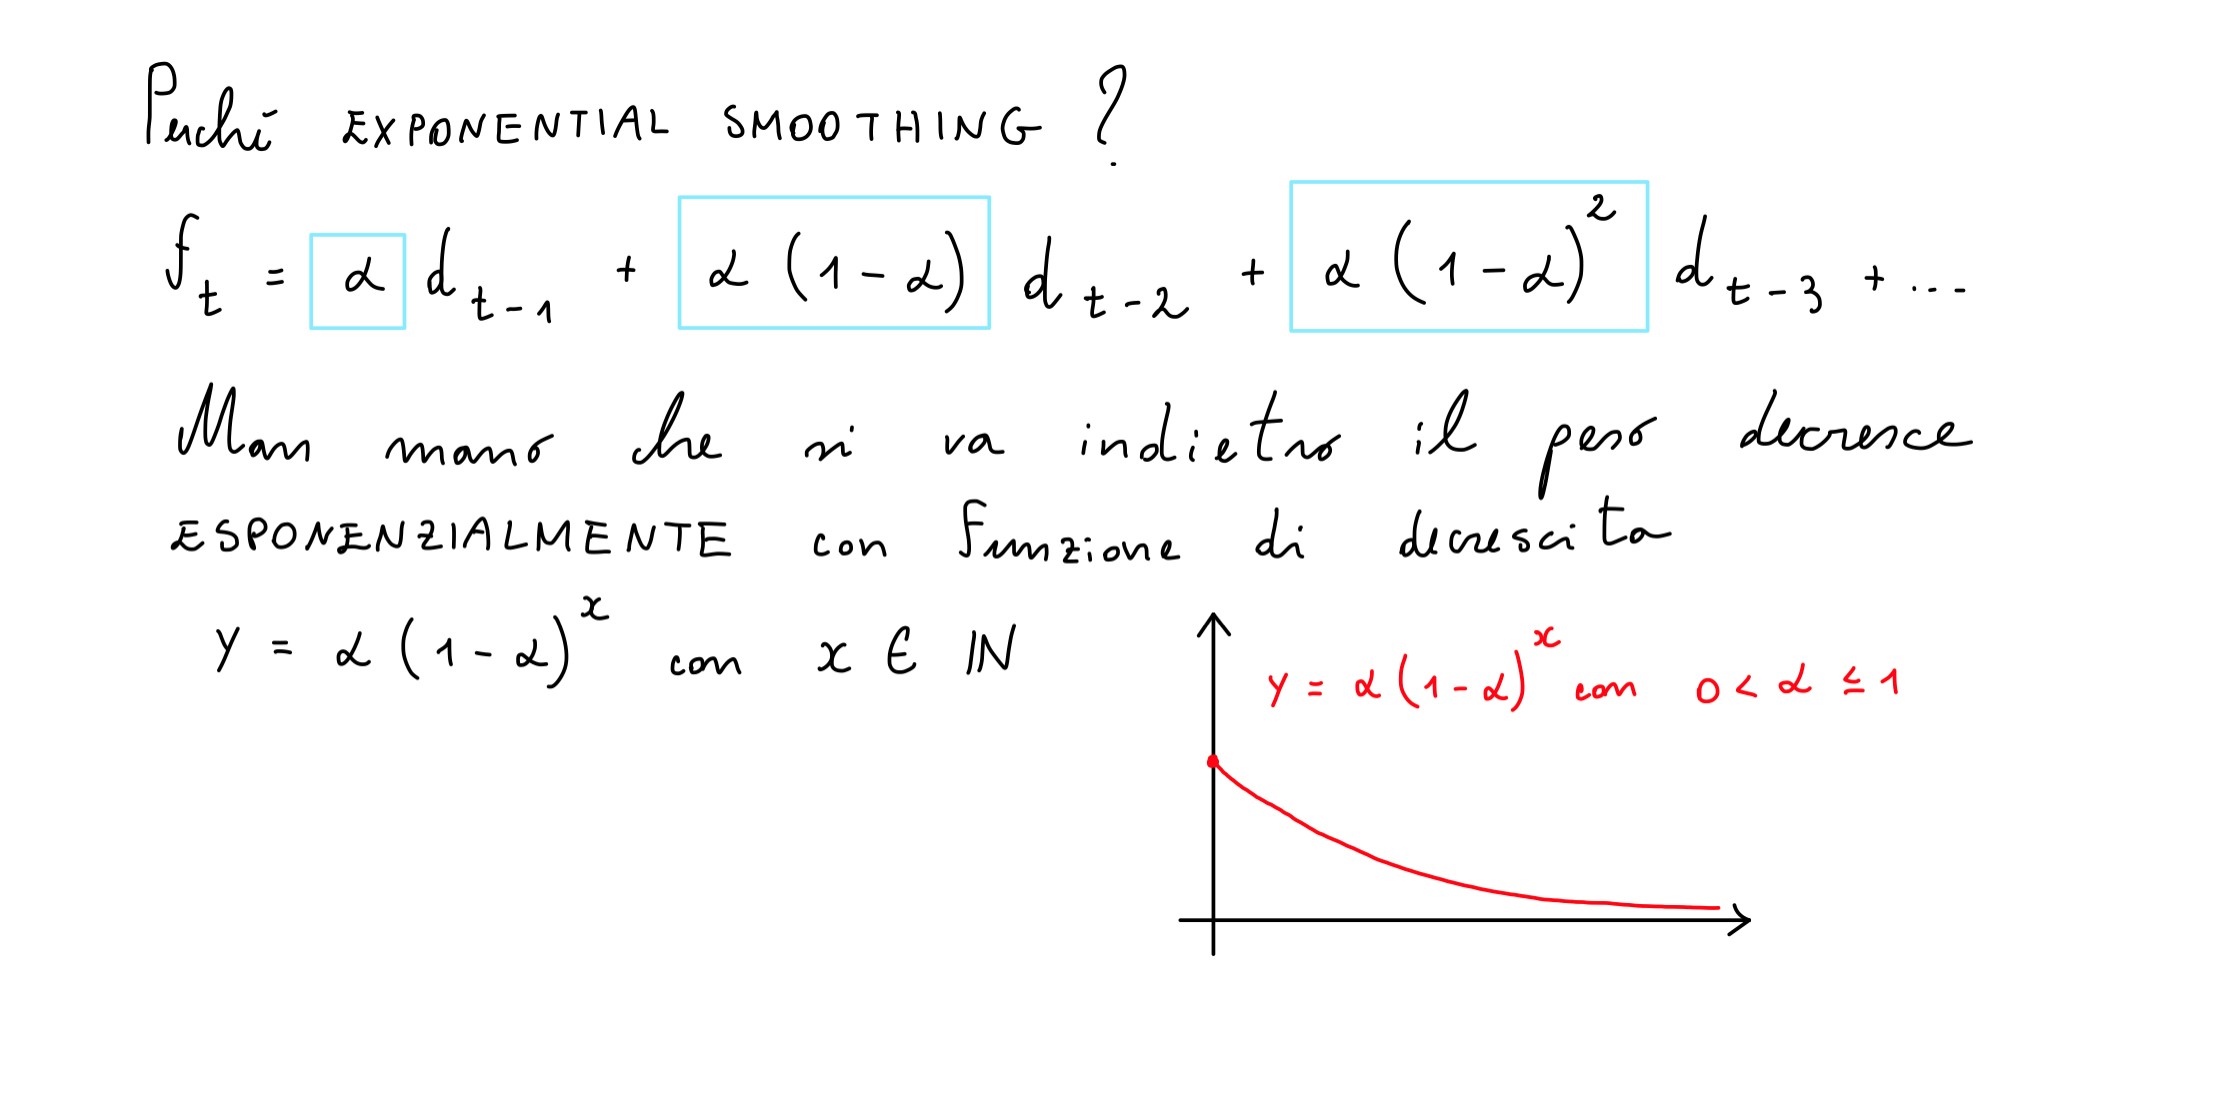 Perché EXPONENTIAL SMOOTHING ?
f_t = α d_{t-1} + α (1-α) d_{t-2} + α (1-α)^2 d_{t-3} + ...
Man mano che si va indietro il peso decresce
ESPONENZIALMENTE con funzione di decrescita
y = α (1-α)^x con x ∈ ℕ
y = α (1-α)^x con 0 < α ≤ 1